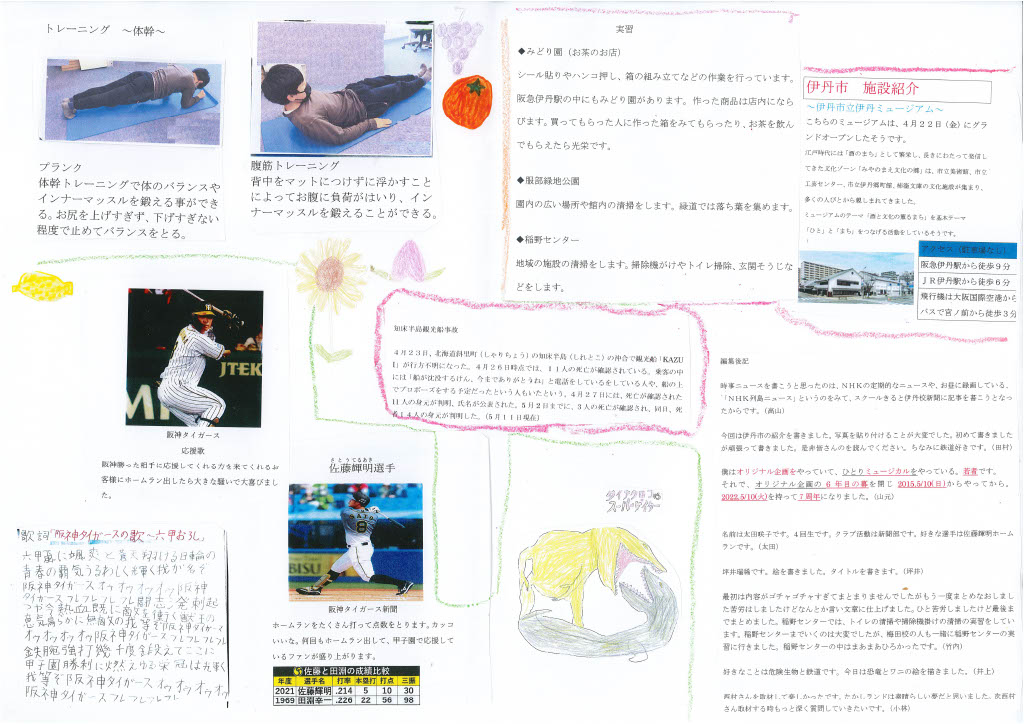 トレーニング　～体幹～
プランク
体幹トレーニングで体のバランスや
インナーマッスルを鍛える事ができ
る。お尻を上げすぎず、下げすぎない
程度で止めてバランスをとる。
腹筋トレーニング
背中をマットにつけずに浮かすこと
によってお腹に負荷がはいり、イン
ナーマッスルを鍛えることができる。
実習
◆みどり園（お茶のお店）
シール貼りやハンコ押し、箱の組み立てなどの作業を行っています。
阪急伊丹駅の中にもみどり園があります。作った商品は店内になら
びます。買ってもらった人に作った箱をみてもらったり、お茶を飲ん
でもらえたら光栄です。
◆服部緑地公園
園内の広い場所や館内の清掃をします。緑道では落ち葉を集めます。
◆稲野センター
地域の施設の清掃をします。掃除機がけやトイレ掃除、玄関そうじな
どをします。
伊丹市　施設紹介
～伊丹市立伊丹ミュージアム～
こちらのミュージアムは、４月２２日（金）にグラ
ンドオープンしたそうです。
江戸時代には「酒のまち」として繁栄し、長きにわたって発信し
てきた文化ゾーン「みやのまえ文化の郷」は、市立美術館、市立
工芸センター、市立伊丹郷町館、柿衞文庫の文化施設が集まり、
多くの人びとから親しまれてきました。
ミュージアムのテーマ「酒と文化の薫るまち」を基本テーマ
「ひと」と「まち」をつなげる活動をしているそうです。
アクセス（駐車場なし）
阪急伊丹駅から徒歩９分
ＪＲ伊丹駅から徒歩６分
飛行機は大阪国際空港から
バスで宮ノ前から徒歩３分
JTEK
阪神タイガース
応援歌
阪神勝った相手に応援してくれる方を来てくれるお
客様にホームラン出したら大きな騒いで大喜びまし
た。
知床半島観光船事故
４月２３日、北海道斜里町（しゃりちょう）の知床半島（しれとこ）の沖合で観光船「KAZU
I」が行方不明になった。４月２６日時点では、１１人の死亡が確認されている。乗客の中
には「船が沈没するけん、今までありがとうね」と電話をしているをしている人や、船の上
でプロポーズをする予定だったという人もいたという。４月２７日には、死亡が確認された
11人の身元が判明、氏名が公表された。５月２日までに、３人の死亡が確認され、同日、死
者１４人の身元が判明した。（５月１１日現在）
さとうてるあき
佐藤輝明選手
8
BISU
阪神タイガース新聞
ホームランをたくさん打って点数をとります。カッコ
いいな。何回もホームラン出して、甲子園で応援して
いるファンが盛り上がります。
佐藤と田淵の成績比較
年度 選手名 打率 本塁打 打点 三振
2021 佐藤輝明 .214 5 10 30
1969 田淵幸一 .226 22 56 98
歌詞「阪神タイガースの歌～六甲おろし」
六甲颪に颯爽と蒼天翔ける日輪の
青春の覇気うるわしく輝く我が名ぞ
阪神タイガースオゥオゥオゥオゥ阪神
タイガースフレフレフレフレ闘志溌剌起
つや今熱血既に敵を衝く獣王の
意気高らかに無敵の我等ぞ阪神タイガース
オゥオゥオゥオゥ阪神タイガースフレフレフレフレ
鉄腕強打幾千度鍛えてここに
甲子園勝利に燃ゆる栄冠は輝く
我等ぞ阪神タイガースオゥオゥオゥオゥ
阪神タイガースフレフレフレフレ
ダイナクロコ
スーパーゲイター
編集後記
時事ニュースを書こうと思ったのは、ＮＨＫの定期的なニュースや、お昼に録画している、
「ＮＨＫ列島ニュース」というのをみて、スクールきると伊丹校新聞に記事を書こうとなっ
たからです。（高山）
今回は伊丹市の紹介を書きました。写真を貼り付けることが大変でした。初めて書きました
が頑張って書きました。是非皆さんのを読んでください。ちなみに鉄道好きです。（田村）
僕はオリジナル企画をやっていて、ひとりミュージカルをやっている。若者です。
それで、オリジナル企画の６年目の幕を閉じ 2015.5/10(日)からやってから。
2022.5/10(火)を持って７周年になりました。（山元）
名前は太田咲子です。４回生です。クラブ活動は新聞部です。好きな選手は佐藤輝明ホーム
ランです。（太田）
坪井瑠綺です。絵を書きました。タイトルを書きます。（坪井）
最初は内容がゴチャゴチャすぎてまとまりませんでしたがもう一度まとめなおしまし
た苦労はしましたけどなんとか言い文章に仕上げました。ひと苦労しましたけど最後ま
でまとめました。稲野センターでは、トイレの清掃や掃除機掛けの清掃の実習をしてい
ます。稲野センターまでいくのは大変でしたが、梅田校の人も一緒に稲野センターの実
習に行きました。稲野センターの中はまあまあひろかったです。（竹内）
好きなことは危険生物と鉄道です。今日は恐竜とワニの絵を描きました。（井上）
西村さんを取材して楽しかったです。たかしランドは素晴らしい夢だと思いました。次西村
さん取材する時もっと深く質問していきたいです。（小林）